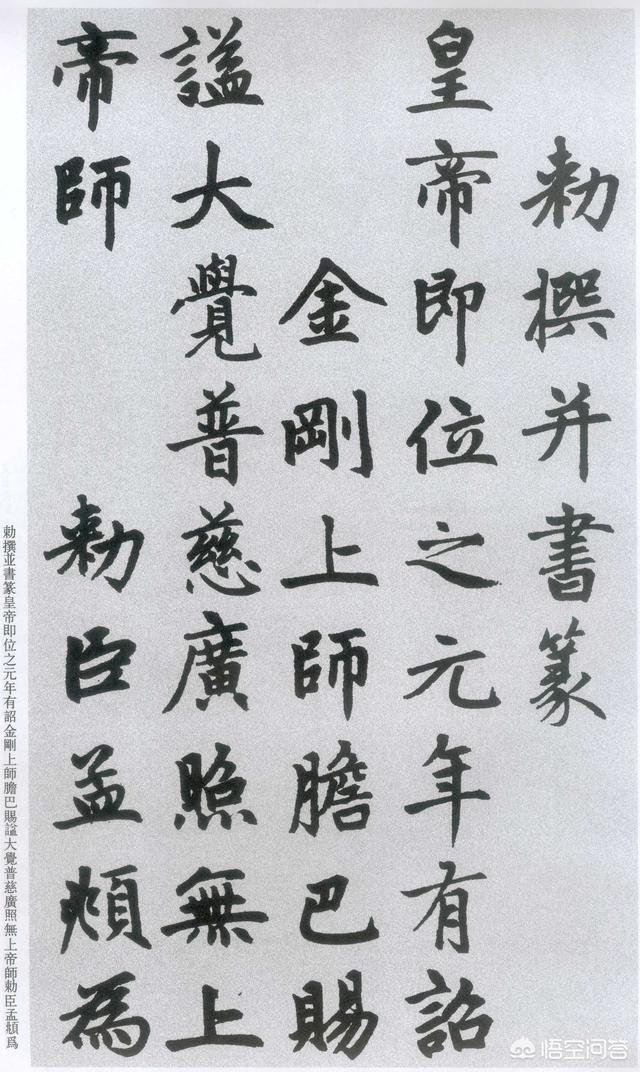 敕撰并書篆
皇帝即位之元年有詔
金剛上師膽巴賜
謚大覺普慈廣照無上
帝師
敕臣孟頫為
勅撰並書篆皇帝即位之元年有詔金剛上師膽巴賜謚大覺普慈廣照無上帝師勅臣孟頫爲
悟空问答